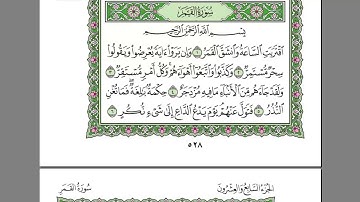 سُورَةُ القَمَرِ
بِسْمِ اللَّهِ الرَّحْمَٰنِ الرَّحِيمِ
اقْتَرَبَتِ السَّاعَةُ وَانشَقَّ الْقَمَرُ ١ وَإِن يَرَوْا ءَايَةً يُعْرِضُوا وَيَقُولُوا
سِحْرٌ مُّسْتَمِرٌّ ٢ وَكَذَّبُوا وَاتَّبَعُوا أَهْوَاءَهُمْ وَكُلُّ أَمْرٍ مُّسْتَقِرٌّ ٣
وَلَقَدْ جَاءَهُم مِّنَ الْأَنبَاءِ مَا فِيهِ مُزْدَجَرٌ ٤ حِكْمَةٌ بَالِغَةٌ فَمَا تُغْنِ
النُّذُرُ ٥ فَتَوَلَّ عَنْهُمْ يَوْمَ يَدْعُ الدَّاعِ إِلَىٰ شَيْءٍ نُّكُرٍ ٦
٥٢٨
الجزء السابع والعشرون
سورة القمر